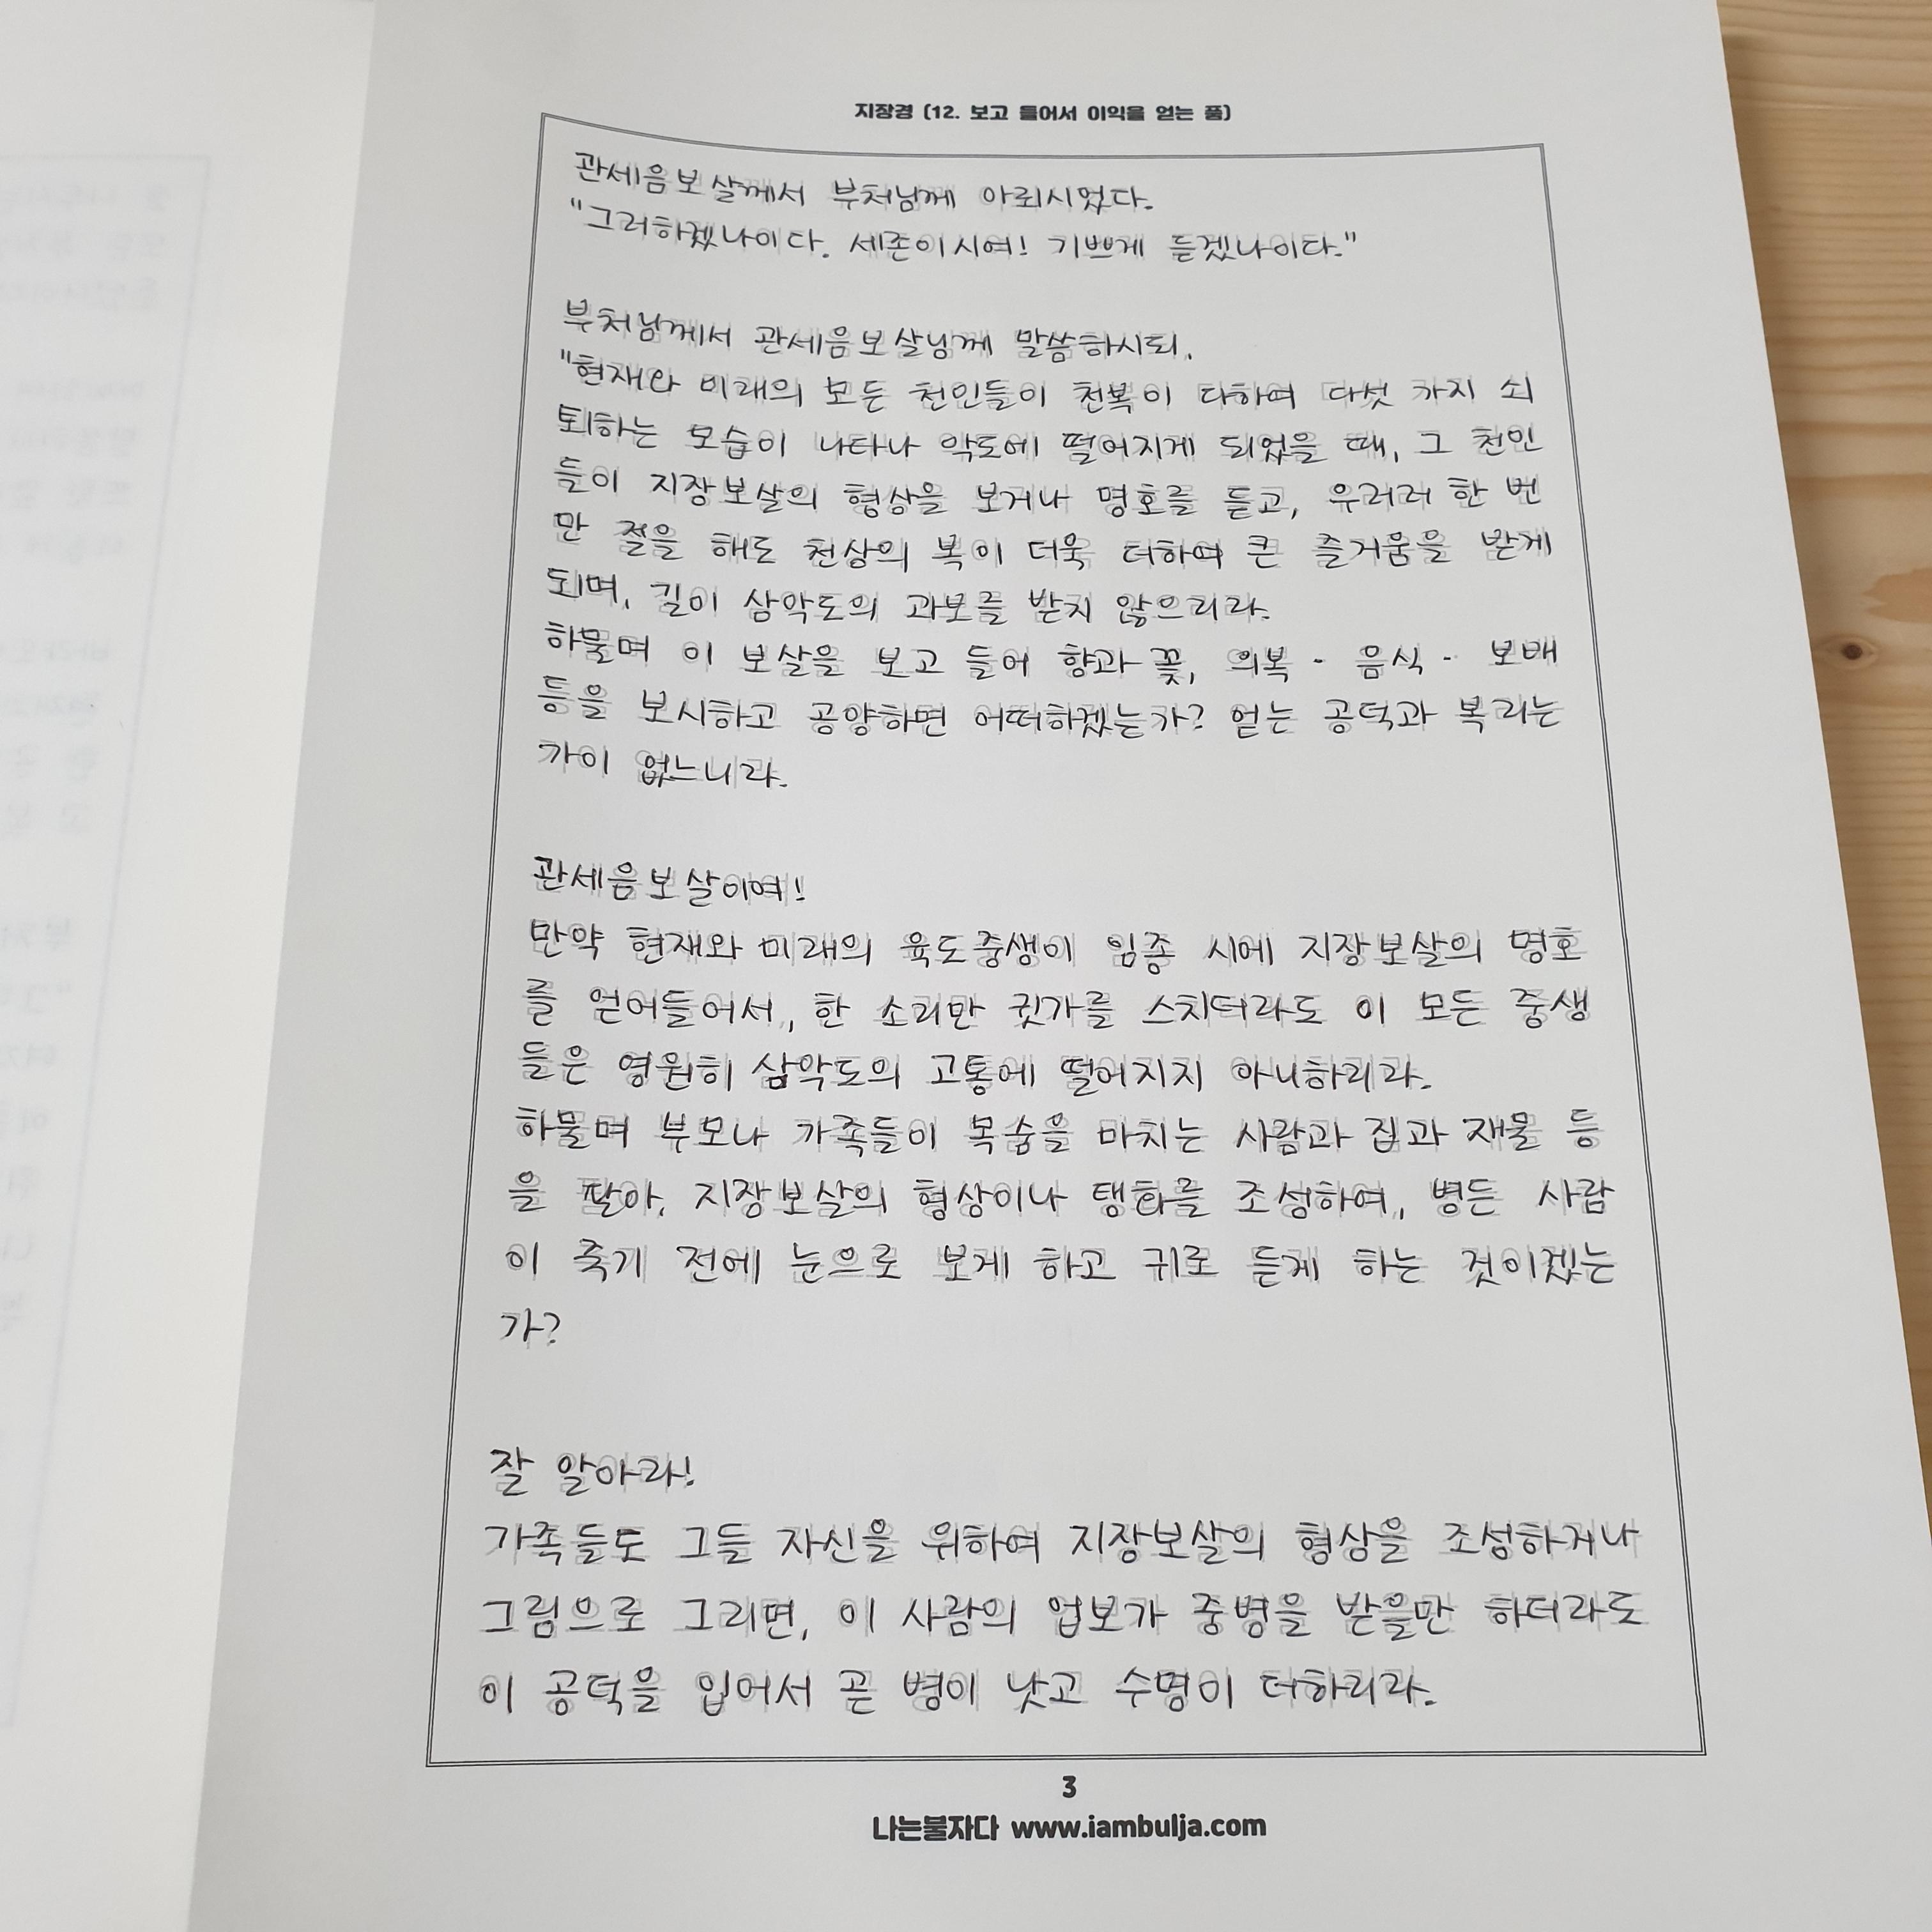 지장경 (12. 보고 들어서 이익을 얻는 품)
관세음보살께서 부처님께 아뢰시었다.
"그러하겠나이다. 세존이시여! 기쁘게 듣겠나이다."
부처님께서 관세음보살님께 말씀하시되,
"현재와 미래의 모든 천인들이 천복이 다하여 다섯 가지 쇠
퇴하는 모습이 나타나 악도에 떨어지게 되었을 때, 그 천인
들이 지장보살의 형상을 보거나 명호를 듣고, 우러러 한 번
만 절을 해도 천상의 복이 더욱 더하여 큰 즐거움을 받게
되며, 길이 삼악도의 과보를 받지 않으리라.
하물며 이 보살을 보고 들어 향과 꽃, 의복 · 음식 · 보배
등을 보시하고 공양하면 어떠하겠는가? 얻는 공덕과 복리는
가이 없느니라.
관세음보살이여!
만약 현재와 미래의 육도중생이 임종 시에 지장보살의 명호
를 얻어들어서, 한 소리만 귓가를 스치더라도 이 모든 중생
들은 영원히 삼악도의 고통에 떨어지지 아니하리라.
하물며 부모나 가족들이 목숨을 마치는 사람과 집과 재물 등
을 팔아, 지장보살의 형상이나 탱화를 조성하여, 병든 사람
이 죽기 전에 눈으로 보게 하고 귀로 듣게 하는 것이겠는
가?
잘 알아라!
가족들도 그들 자신을 위하여 지장보살의 형상을 조성하거나
그림으로 그리면, 이 사람의 업보가 중병을 받을만 하더라도
이 공덕을 입어서 곧 병이 낫고 수명이 더하리라.
3
나는불자다 www.iambulja.com